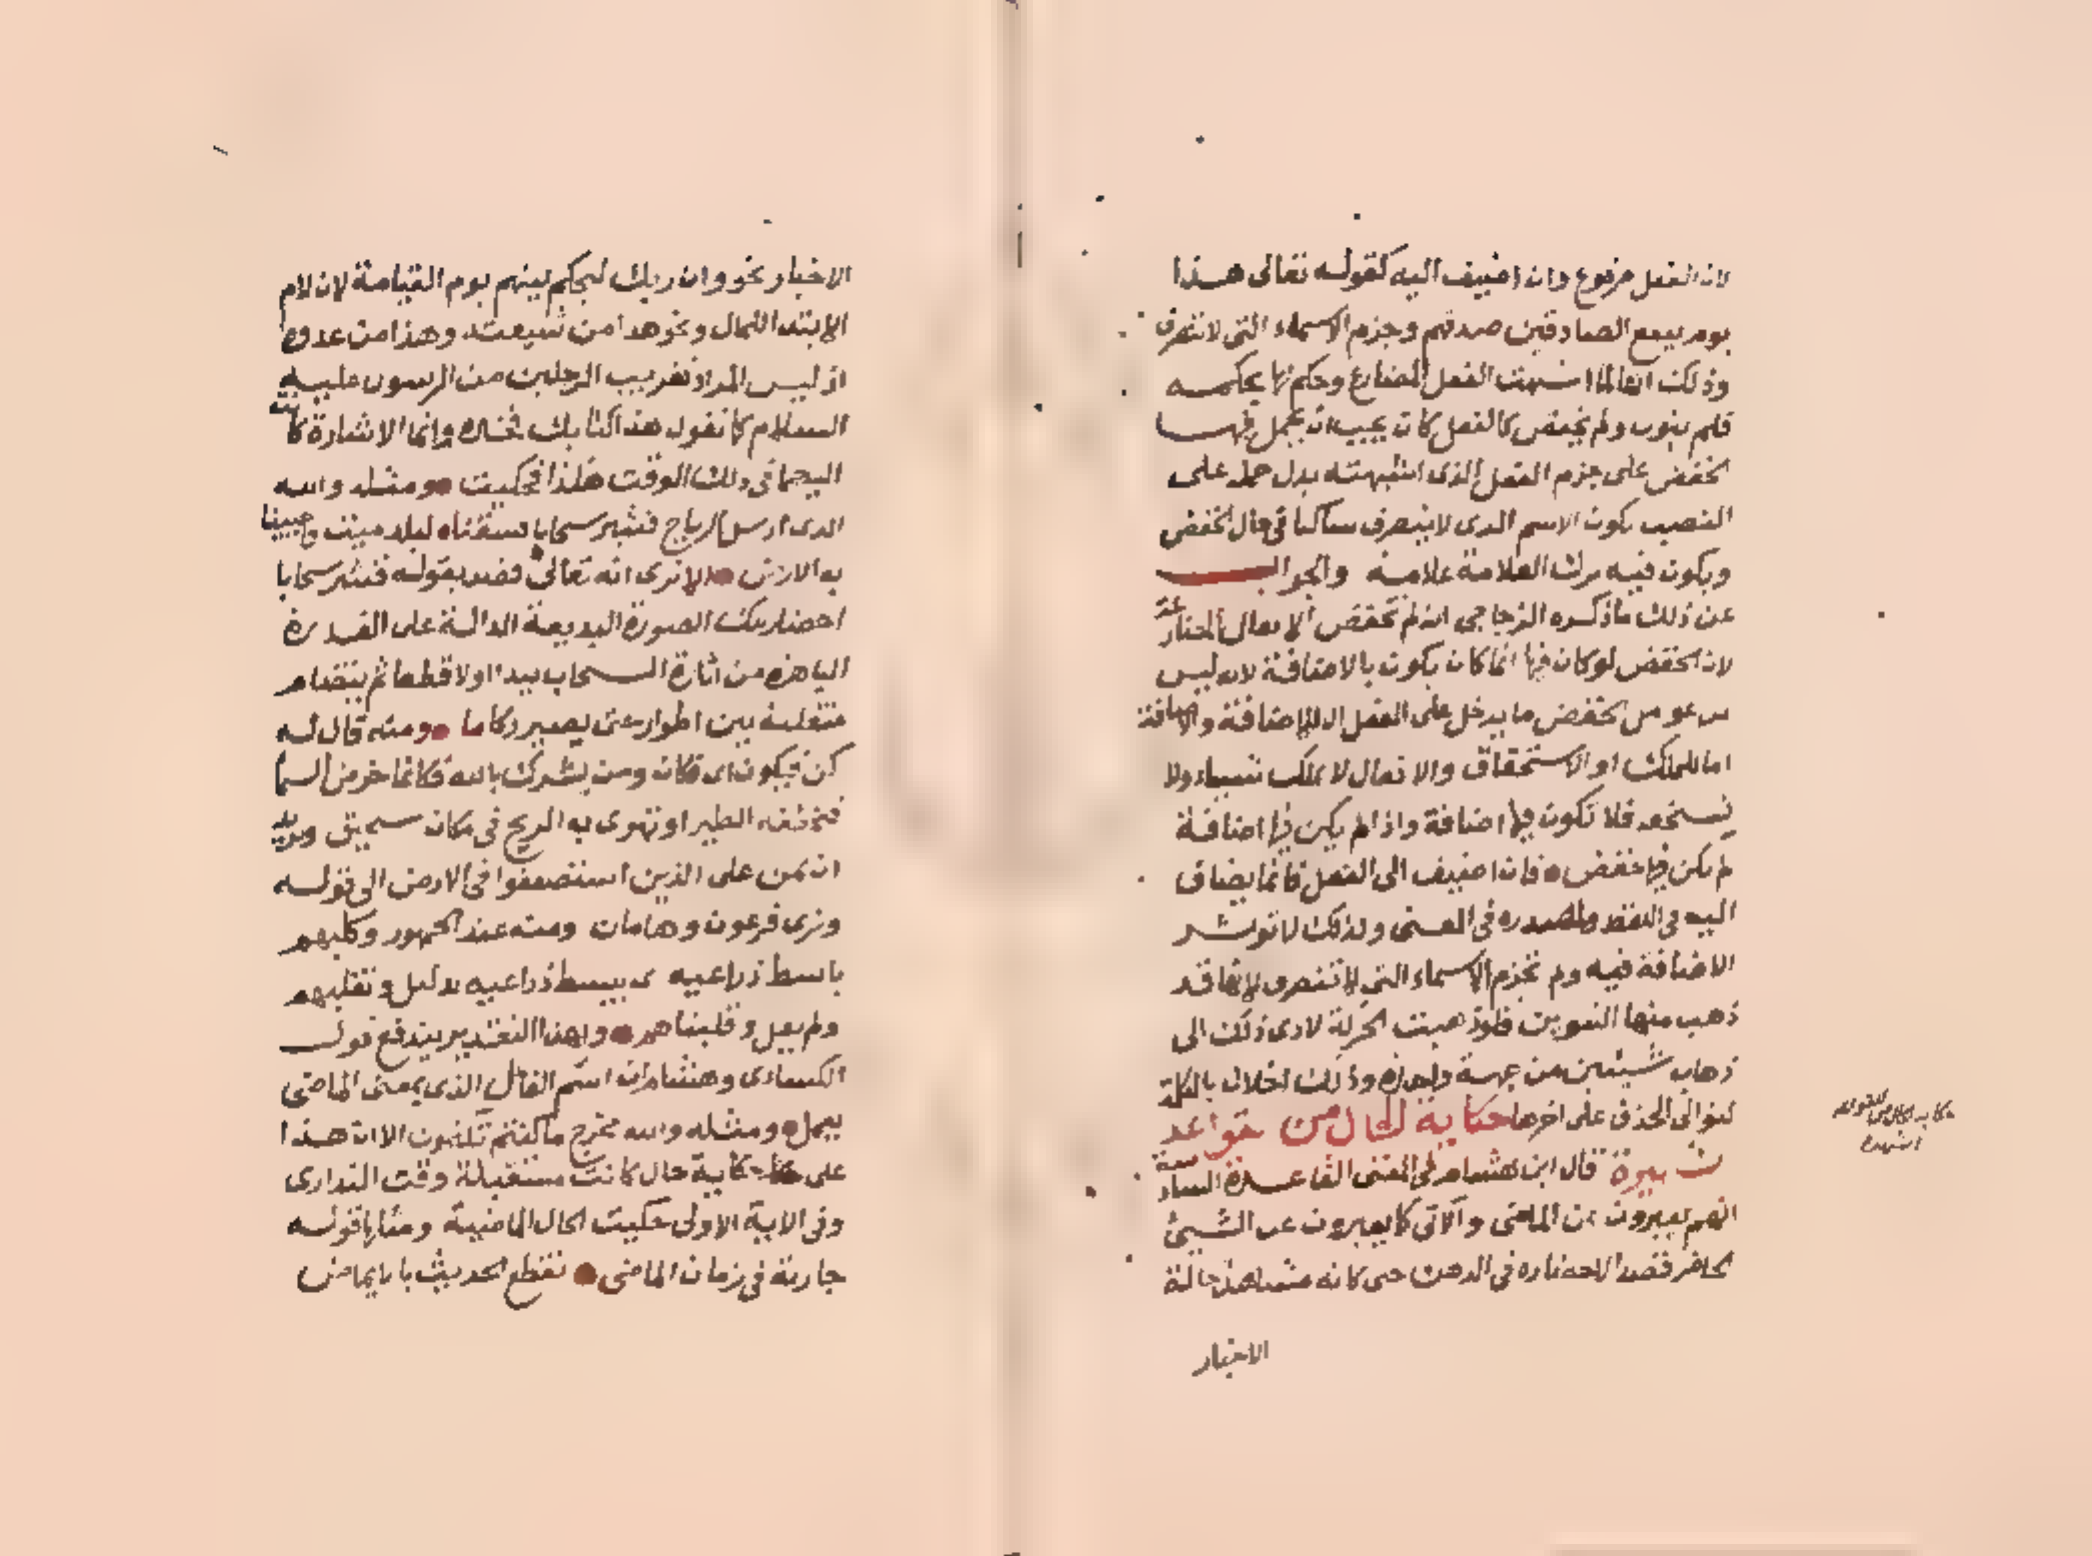 لان الفعل مرفوع وان اضيف اليه كقوله تعالى هذا
يوم ينفع الصادقين صدقهم وجزم الاسماء التى لا تنصرف
وذلك انها لما اشبهت الفعل المضارع وحكم لها بحكمه
فلم ينون ولم يخفض كالفعل كان يجب ان يحمل فيها
الخفض على جزم الفعل الذى اشبهته بدل حمله على
النصب يكون الاسم الذى لا ينصرف ساكنا فى حال الخفض
ويكون فيه ترك العلامة علامة والجواب
عن ذلك ما ذكره الزجاجى انه لم تخفض الافعال المضارعة
لان الخفض لو كان فيها انما كان يكون بالاضافة لانه ليس
من عوامل الخفض ما يدخل على الفعل الا الاضافة والاضافة
اما للملك او الاستحقاق والافعال لا تملك شيئا ولا
تستحقه فلا تكون فيها اضافة واذا لم يكن فيها اضافة
لم يكن فيها خفض فان اضيف الى الفعل فانما يضاف
اليه فى اللفظ ولمصدره فى المعنى ولذلك لا تؤثر
الاضافة فيه ولم تجزم الاسماء التى لا تنصرف لانها قد
ذهب منها التنوين فلو ذهبت الحركة لادى ذلك الى
ذهاب شيئين من جهة واحدة وذلك اخلال بالكلمة
لتوالى الحذف على اخرها حكاية الحال من قواعد
شهيرة قال ابن هشام فى المغنى القاعدة السادسة
انهم يعبرون عن الماضى والآتى كما يعبرون عن الشيئ
الحاضر قصدا لاحضاره فى الذهن حتى كانه مشاهد حالة
الاخبار
حكاية الحال من القواعد
الشهيرة
الاخبار نحو وان ربك ليحكم بينهم يوم القيامة لان لام
الابتداء للحال ونحو هذا من شيعته وهذا من عدوه
اذ ليس المراد تقريب الرجلين من الرسول عليه
السلام كما تقول هذا كتابك فخذه وانما الاشارة كانت
اليهما فى ذلك الوقت هكذا فحكيت ومثله والله
الذى ارسل الرياح فتثير سحابا فسقناه لبلد ميت واحيينا
به الارض الا ترى انه تعالى قصد بقوله فتثير سحابا
احضار تلك الصورة البديعة الدالة على القدرة
الباهرة من اثارة السحاب يبدا اولا قطعا ثم يتضام
متقلبة بين اطوار حتى يصير ركاما ومنه قال له
كن فيكون اى فكان ومن يشرك بالله فكانما خر من السماء
فتخطفه الطير او تهوى به الريح فى مكان سحيق ونريد
ان نمن على الذين استضعفوا فى الارض الى قوله
ونرى فرعون وهامان ومنه عند الجمهور وكلبهم
باسط ذراعيه اى يبسط ذراعيه بدليل ونقلبهم
ولم يقل وقلبناهم وبهذا التقدير يندفع قول
الكسائى وهشام ان اسم الفاعل الذى بمعنى الماضى
يعمل ومثله والله مخرج ما كنتم تكتمون الا ان هذا
على حكاية حال كانت مستقبلة وقت التدارى
وفى الاية الاولى حكيت الحال الماضية ومثلها قوله
جارية فى زمان الماضى تقطع الحديث بالايماض